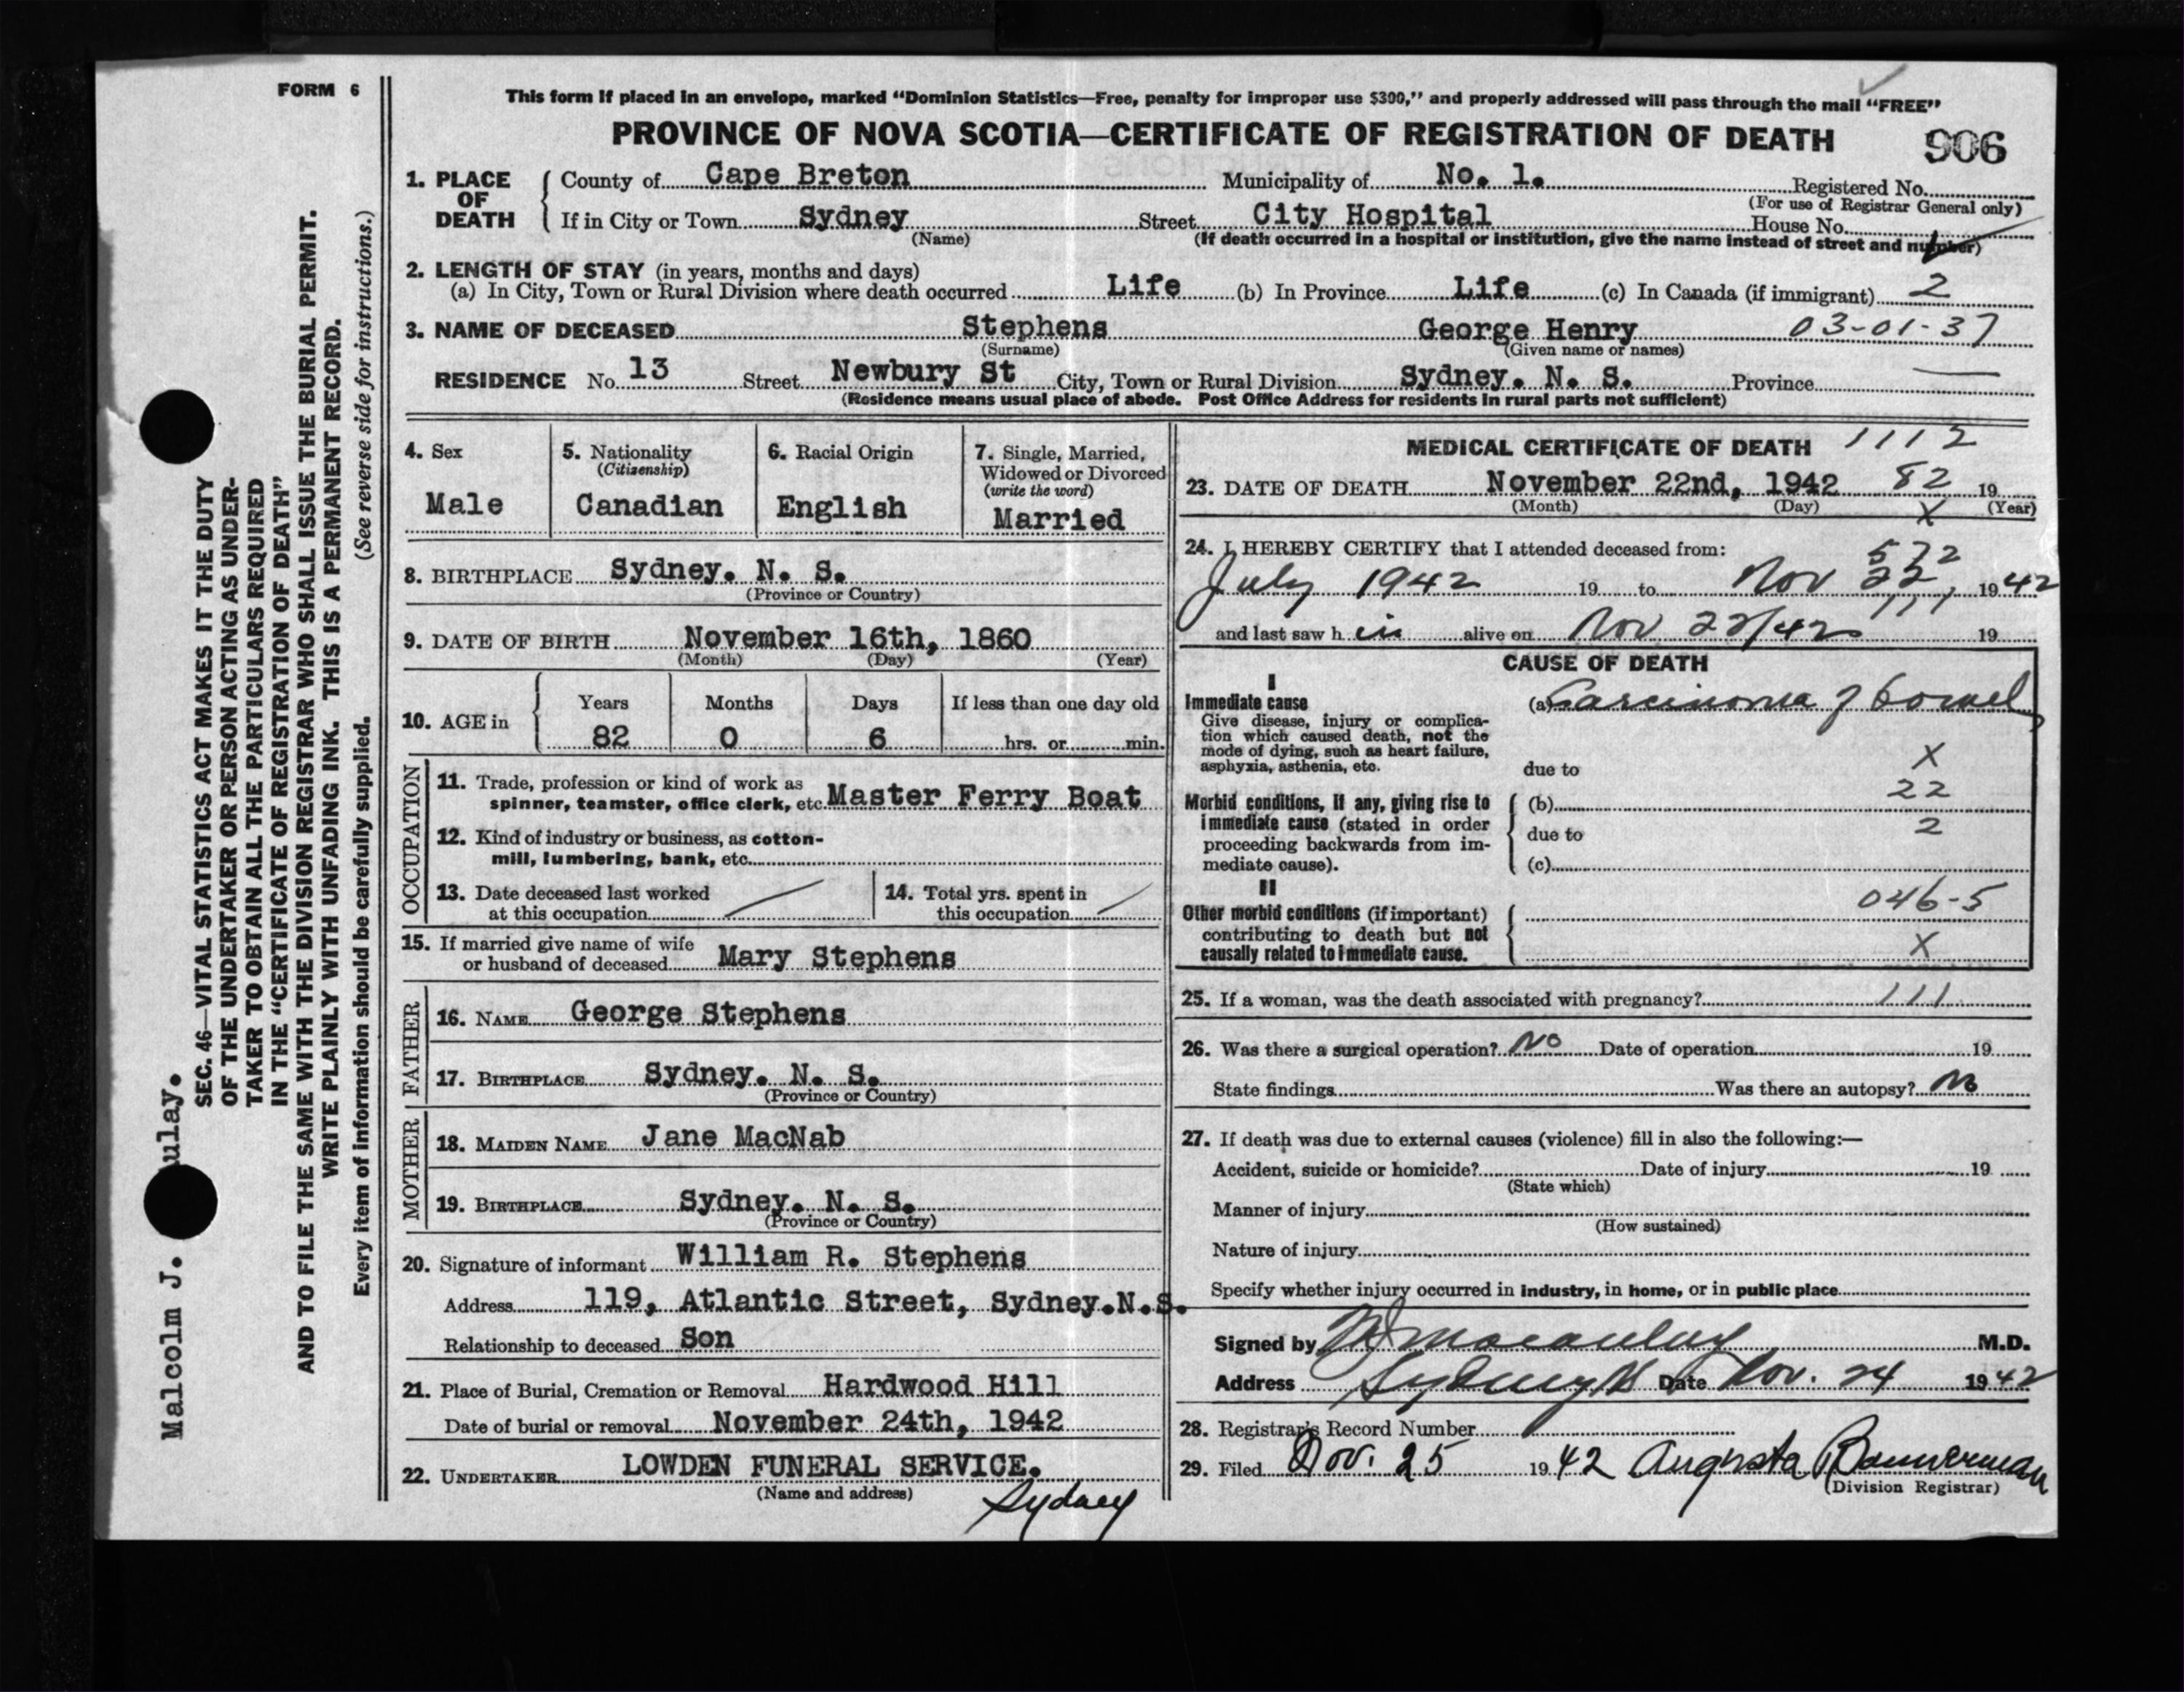 FORM 6
This form if placed in an envelope, marked "Dominion Statistics—Free, penalty for improper use $300," and properly addressed will pass through the mail "FREE"
PROVINCE OF NOVA SCOTIA—CERTIFICATE OF REGISTRATION OF DEATH 906
1. PLACE OF DEATH County of Cape Breton Municipality of No. 1. Registered No.
(For use of Registrar General only)
If in City or Town Sydney Street City Hospital House No.
(Name) (If death occurred in a hospital or institution, give the name instead of street and number)
2. LENGTH OF STAY (in years, months and days)
(a) In City, Town or Rural Division where death occurred Life (b) In Province Life (c) In Canada (if immigrant) 2
3. NAME OF DECEASED Stephens George Henry 03-01-37
(Surname) (Given name or names)
RESIDENCE No. 13 Street Newbury St City, Town or Rural Division Sydney. N. S. Province
(Residence means usual place of abode. Post Office Address for residents in rural parts not sufficient)
4. Sex
Male
5. Nationality
(Citizenship)
Canadian
6. Racial Origin
English
7. Single, Married,
Widowed or Divorced
(write the word)
Married
8. BIRTHPLACE Sydney. N. S.
(Province or Country)
9. DATE OF BIRTH November 16th, 1860
(Month) (Day) (Year)
10. AGE in Years Months Days If less than one day old
82 0 6 hrs. or min.
OCCUPATION
11. Trade, profession or kind of work as
spinner, teamster, office clerk, etc. Master Ferry Boat
12. Kind of industry or business, as cotton-
mill, lumbering, bank, etc.
13. Date deceased last worked
at this occupation
14. Total yrs. spent in
this occupation
15. If married give name of wife
or husband of deceased Mary Stephens
FATHER
16. NAME George Stephens
17. BIRTHPLACE Sydney. N. S.
(Province or Country)
MOTHER
18. MAIDEN NAME Jane MacNab
19. BIRTHPLACE Sydney. N. S.
(Province or Country)
20. Signature of informant William R. Stephens
Address 119, Atlantic Street, Sydney.N.S.
Relationship to deceased Son
21. Place of Burial, Cremation or Removal Hardwood Hill
Date of burial or removal November 24th, 1942
22. UNDERTAKER LOWDEN FUNERAL SERVICE.
(Name and address) Sydney
MEDICAL CERTIFICATE OF DEATH 1112
23. DATE OF DEATH November 22nd, 1942 82 19
(Month) (Day) X (Year)
24. I HEREBY CERTIFY that I attended deceased from: 572
July 1942 19 to Nov 22, 1942
111
and last saw h im alive on Nov 22/42 19
CAUSE OF DEATH
I
Immediate cause (a) Carcinoma of bowel
Give disease, injury or complica-
tion which caused death, not the
mode of dying, such as heart failure,
asphyxia, asthenia, etc. due to X
22
Morbid conditions, if any, giving rise to (b)
immediate cause (stated in order due to 2
proceeding backwards from im-
mediate cause). (c)
II
046-5
Other morbid conditions (if important)
contributing to death but not
causally related to immediate cause. X
25. If a woman, was the death associated with pregnancy? 111
26. Was there a surgical operation? No Date of operation 19
State findings Was there an autopsy? No
27. If death was due to external causes (violence) fill in also the following:—
Accident, suicide or homicide? Date of injury 19
(State which)
Manner of injury
(How sustained)
Nature of injury
Specify whether injury occurred in industry, in home, or in public place
Signed by MJ Macaulay M.D.
Address Sydney NS Date Nov. 24 1942
28. Registrar's Record Number
29. Filed Nov. 25 1942 Augusta Bannerman
(Division Registrar)
Malcolm J. ulay.
SEC. 46—VITAL STATISTICS ACT MAKES IT THE DUTY
OF THE UNDERTAKER OR PERSON ACTING AS UNDER-
TAKER TO OBTAIN ALL THE PARTICULARS REQUIRED
IN THE "CERTIFICATE OF REGISTRATION OF DEATH"
AND TO FILE THE SAME WITH THE DIVISION REGISTRAR WHO SHALL ISSUE THE BURIAL PERMIT.
WRITE PLAINLY WITH UNFADING INK. THIS IS A PERMANENT RECORD.
Every item of information should be carefully supplied. (See reverse side for instructions.)